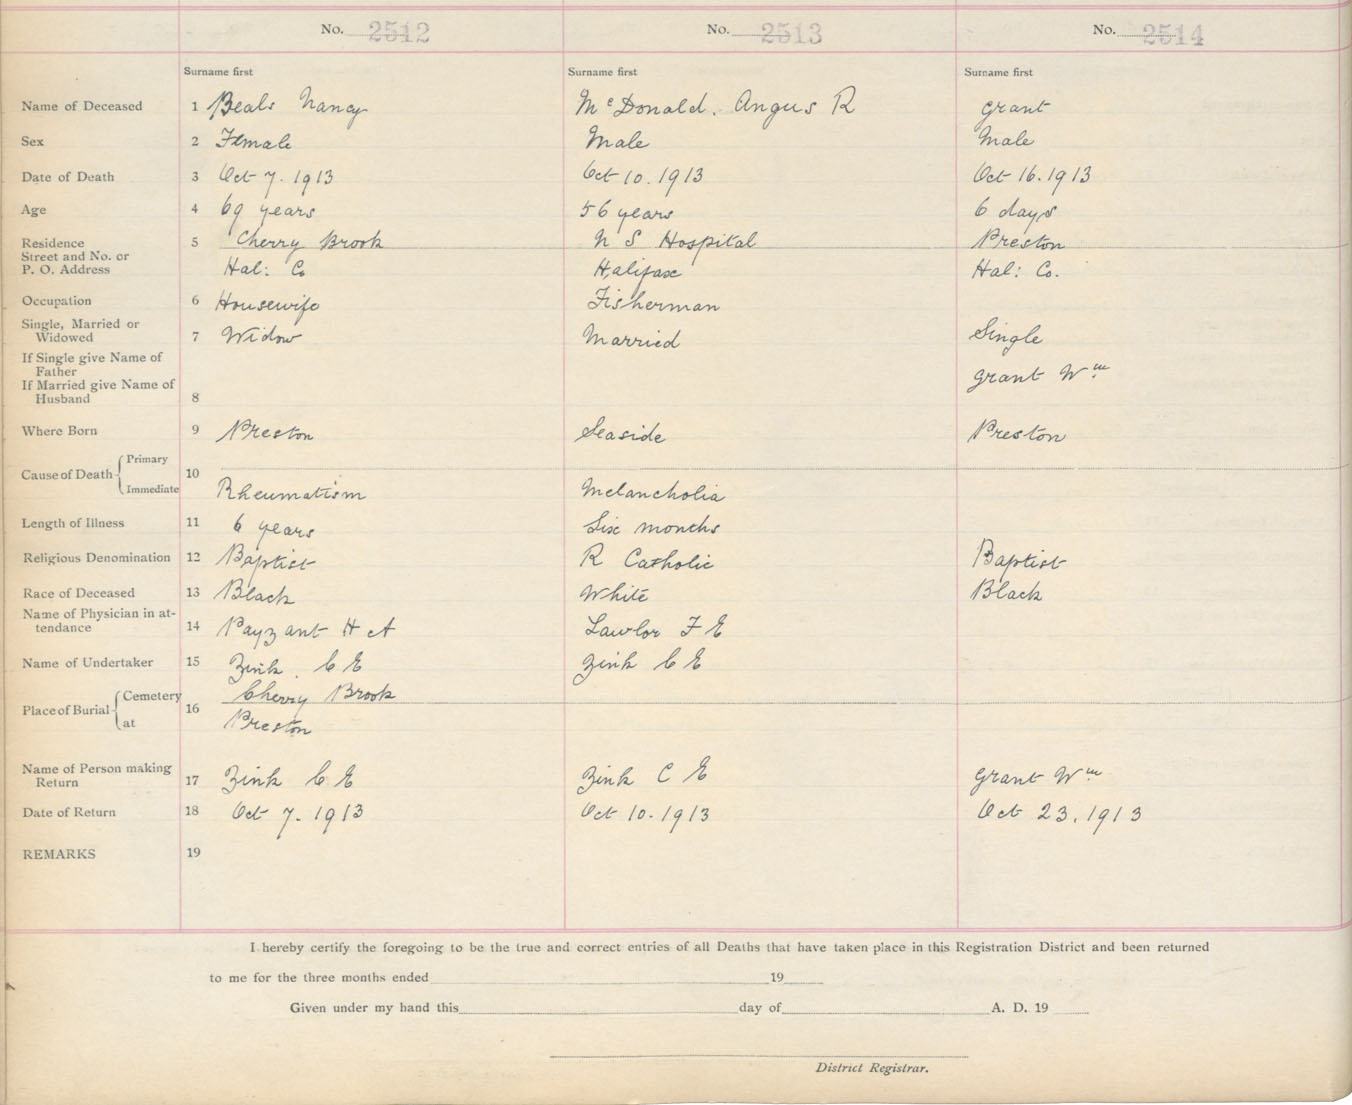 No. 2512 No. 2513 No. 2514
Surname first Surname first Surname first
Name of Deceased 1 Beals Nancy McDonald. Angus R Grant
Sex 2 Female Male Male
Date of Death 3 Oct 7. 1913 Oct 10. 1913 Oct 16. 1913
Age 4 69 years 56 years 6 days
Residence 5 Cherry Brook N S Hospital Preston
Street and No. or
P. O. Address Hal: Co Halifax Hal: Co.
Occupation 6 Housewife Fisherman
Single, Married or
Widowed 7 Widow Married Single
If Single give Name of
Father Grant Wm
If Married give Name of
Husband 8
Where Born 9 Preston Seaside Preston
Cause of Death Primary 10
Immediate Rheumatism Melancholia
Length of Illness 11 6 years Six months
Religious Denomination 12 Baptist R Catholic Baptist
Race of Deceased 13 Black White Black
Name of Physician in at-
tendance 14 Payzant H A Lawlor F E
Name of Undertaker 15 Zink. C E Zink C E
Place of Burial Cemetery 16 Cherry Brook
at Preston
Name of Person making
Return 17 Zink C E Zink C E Grant Wm
Date of Return 18 Oct 7. 1913 Oct 10. 1913 Oct 23. 1913
REMARKS 19
I hereby certify the foregoing to be the true and correct entries of all Deaths that have taken place in this Registration District and been returned
to me for the three months ended 19
Given under my hand this day of A. D. 19
District Registrar.